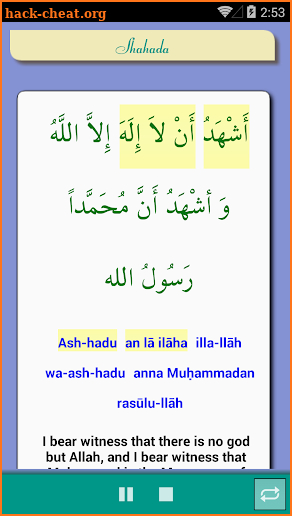 hack-cheat.org
2:53
Shahada
أَشْهَدُ أَنْ لاَ إِلَهَ إِلاَّ اللَّهُ
وَ أشْهَدُ أَنَّ مُحَمَّداً
رَسُولُ الله
Ash-hadu an lā ilāha illa-llāh
wa-ash-hadu anna Muḥammadan
rasūlu-llāh
I bear witness that there is no god
but Allah, and I bear witness that